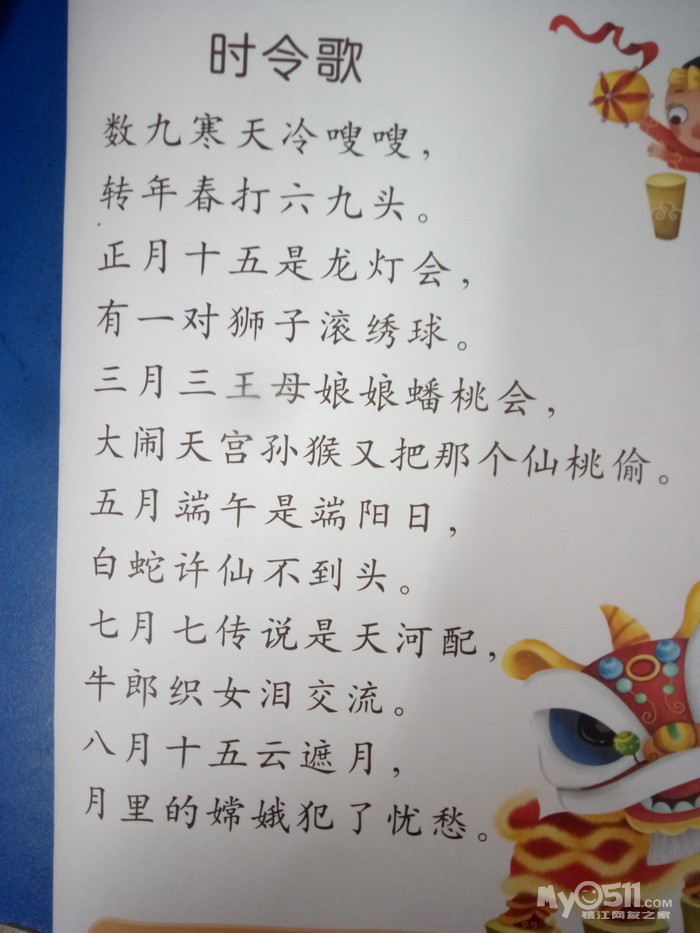 时令歌
数九寒天冷嗖嗖，
转年春打六九头。
正月十五是龙灯会，
有一对狮子滚绣球。
三月三王母娘娘蟠桃会，
大闹天宫孙猴又把那个仙桃偷。
五月端午是端阳日，
白蛇许仙不到头。
七月七传说是天河配，
牛郎织女泪交流。
八月十五云遮月，
月里的嫦娥犯了忧愁。
My0511.COM
镇江网友之家